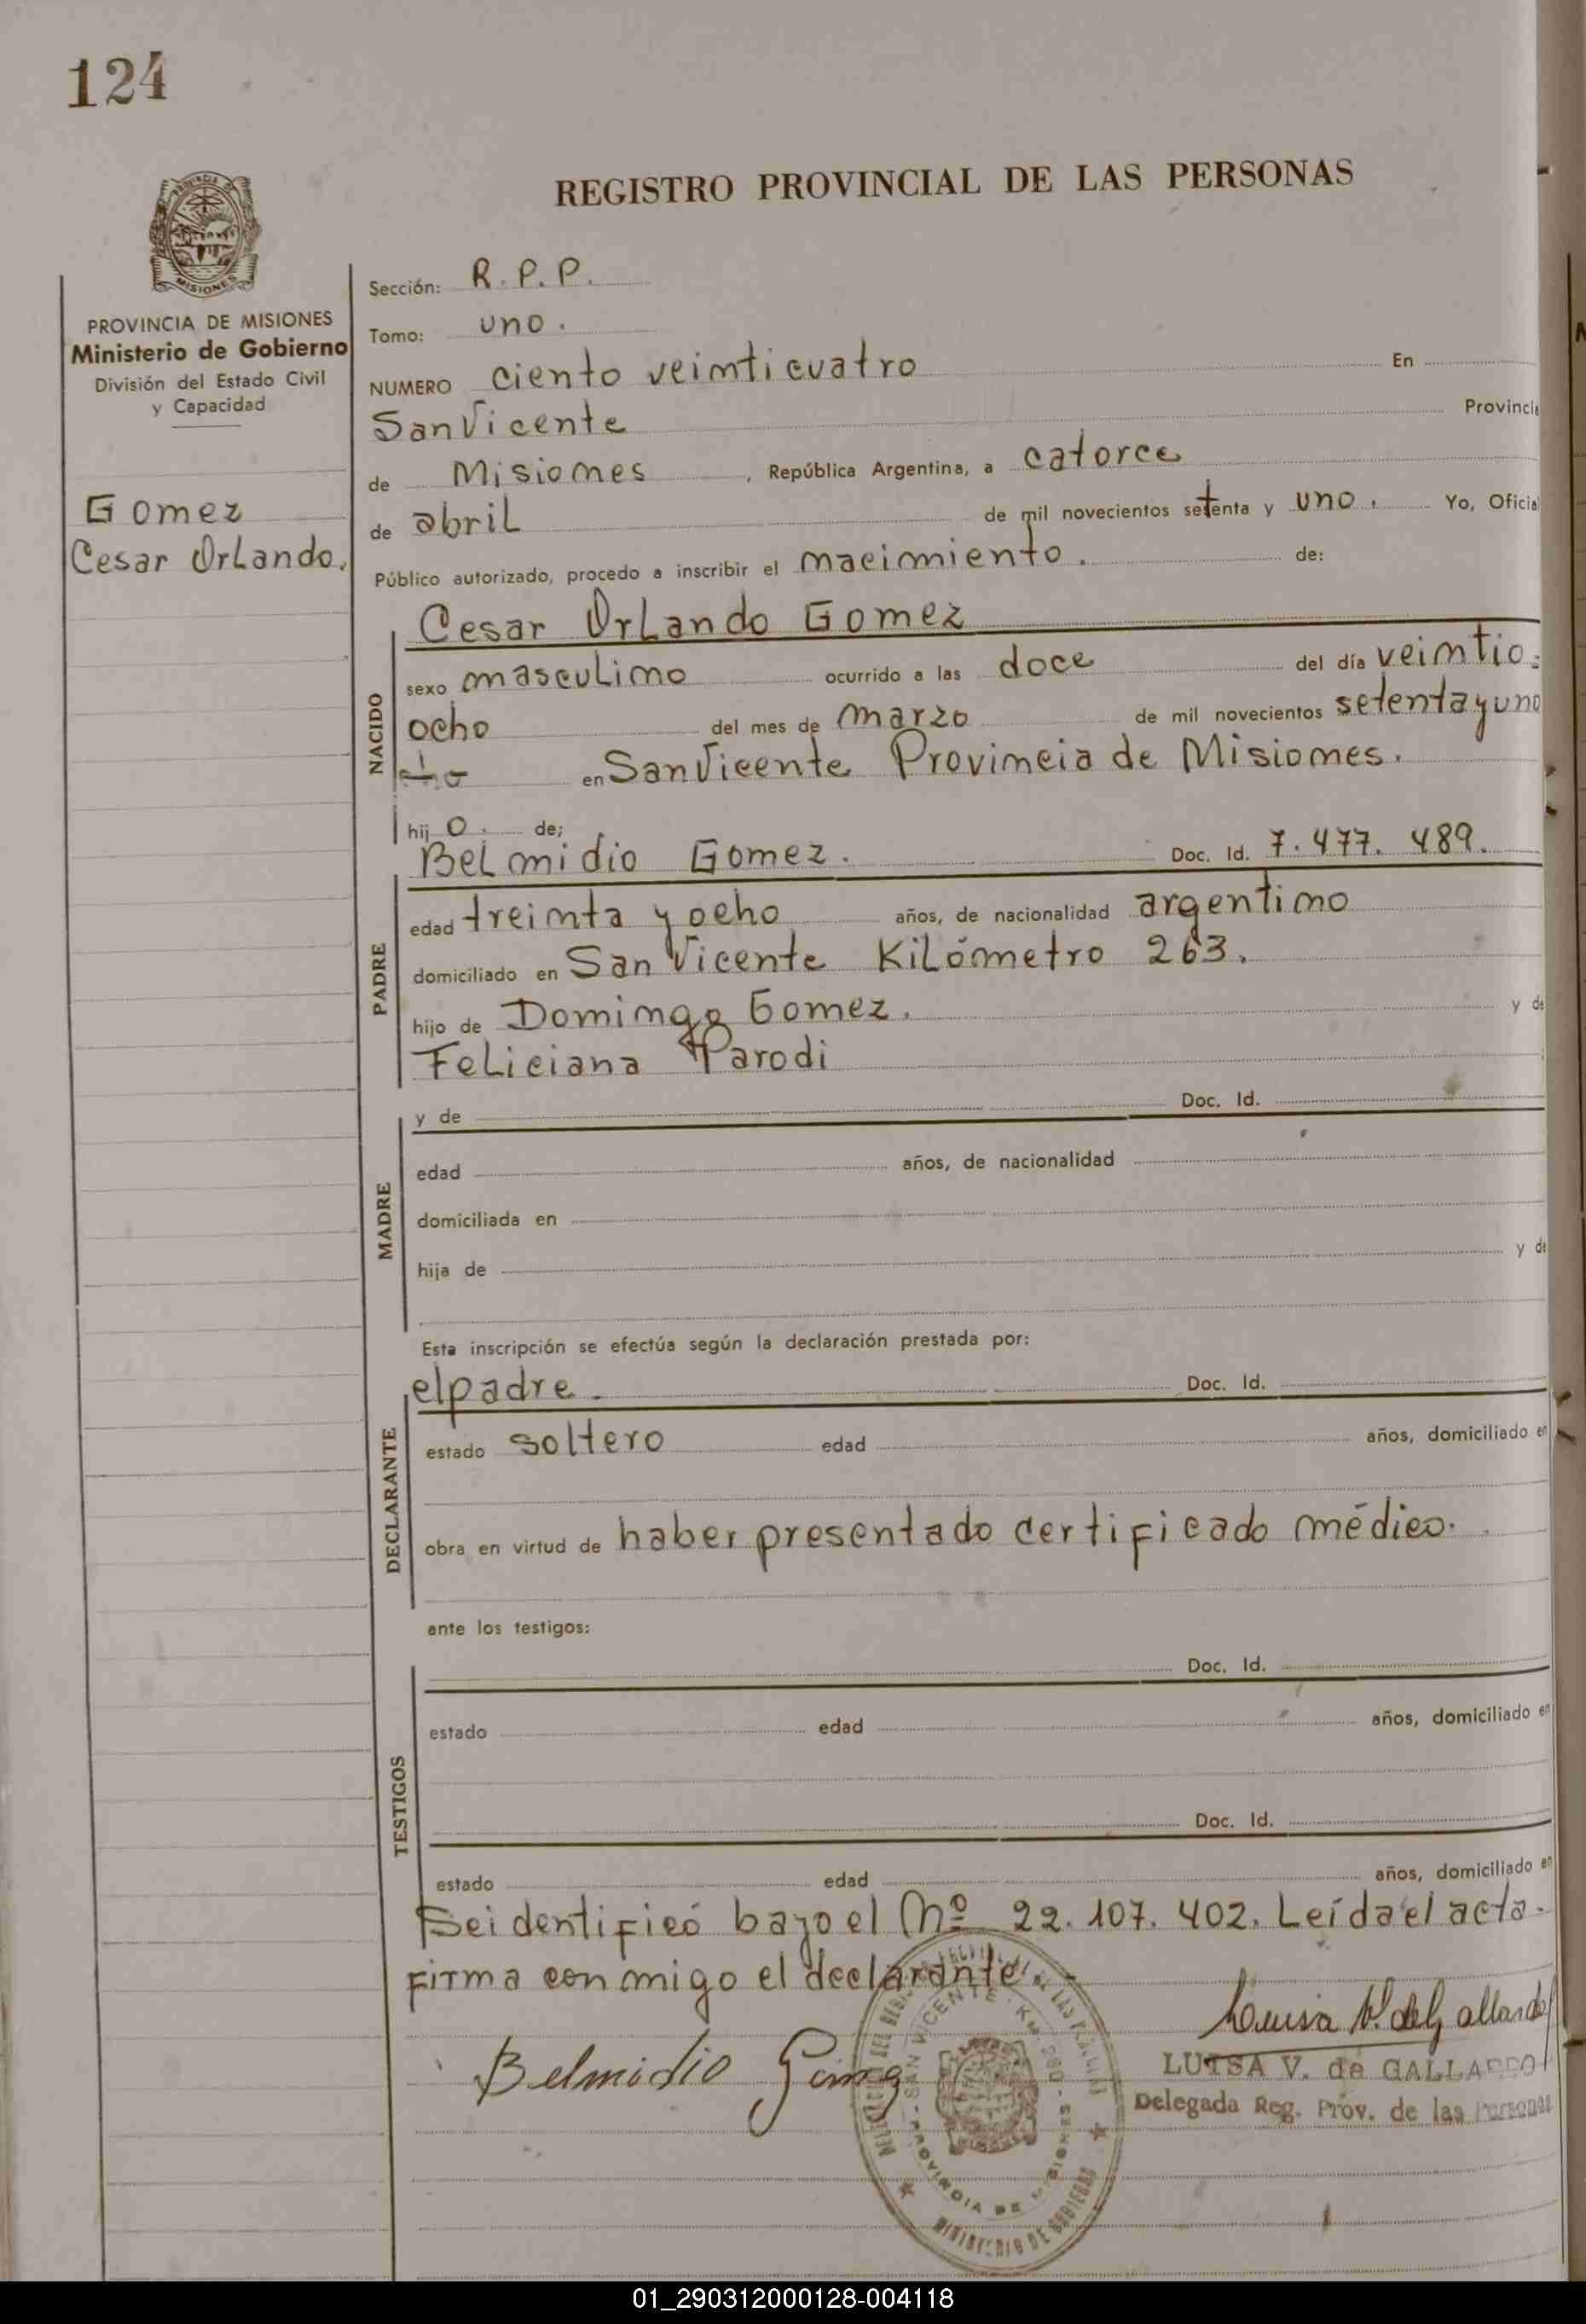 124
REGISTRO PROVINCIAL DE LAS PERSONAS
MISIONES
PROVINCIA DE MISIONES
Ministerio de Gobierno
División del Estado Civil
y Capacidad
Gomez
Cesar Orlando.
Sección: R.P.P.
Tomo: uno.
NUMERO ciento veimticuatro En
San Vicente Provincia
de Misiomes, República Argentina, a catorce
de abril de mil novecientos setenta y uno. Yo, Oficial
Público autorizado, procedo a inscribir el macimiento. de:
NACIDO
Cesar Orlando Gomez
sexo masculimo ocurrido a las doce del día veimtio-
ocho del mes de marzo de mil novecientos setenta y uno
en San Vicente Provimcia de Misiomes.
hijo. de;
PADRE
Belmidio Gomez. Doc. Id. 7.477.489.
edad treimta y ocho años, de nacionalidad argentimo
domiciliado en San Vicente Kilómetro 263.
hijo de Domimgo Gomez. y de
Feliciana Parodi
MADRE
y de Doc. Id.
edad años, de nacionalidad
domiciliada en
hija de y de
Esta inscripción se efectúa según la declaración prestada por:
DECLARANTE
el padre. Doc. Id.
estado soltero edad años, domiciliado en
obra en virtud de haber presentado certificado médico.
ante los testigos:
TESTIGOS
Doc. Id.
estado edad años, domiciliado en
Doc. Id.
estado edad años, domiciliado en
Se identificó bajo el Nº 22.107.402. Leída el acta.
firma con migo el declarante.
Belmidio Gomez
Luisa V. de Gallardo
LUISA V. de GALLARDO
Delegada Reg. Prov. de las Personas
SAN VICENTE
PROVINCIA DE MISIONES
MINISTERIO DE GOBIERNO
01_290312000128-004118